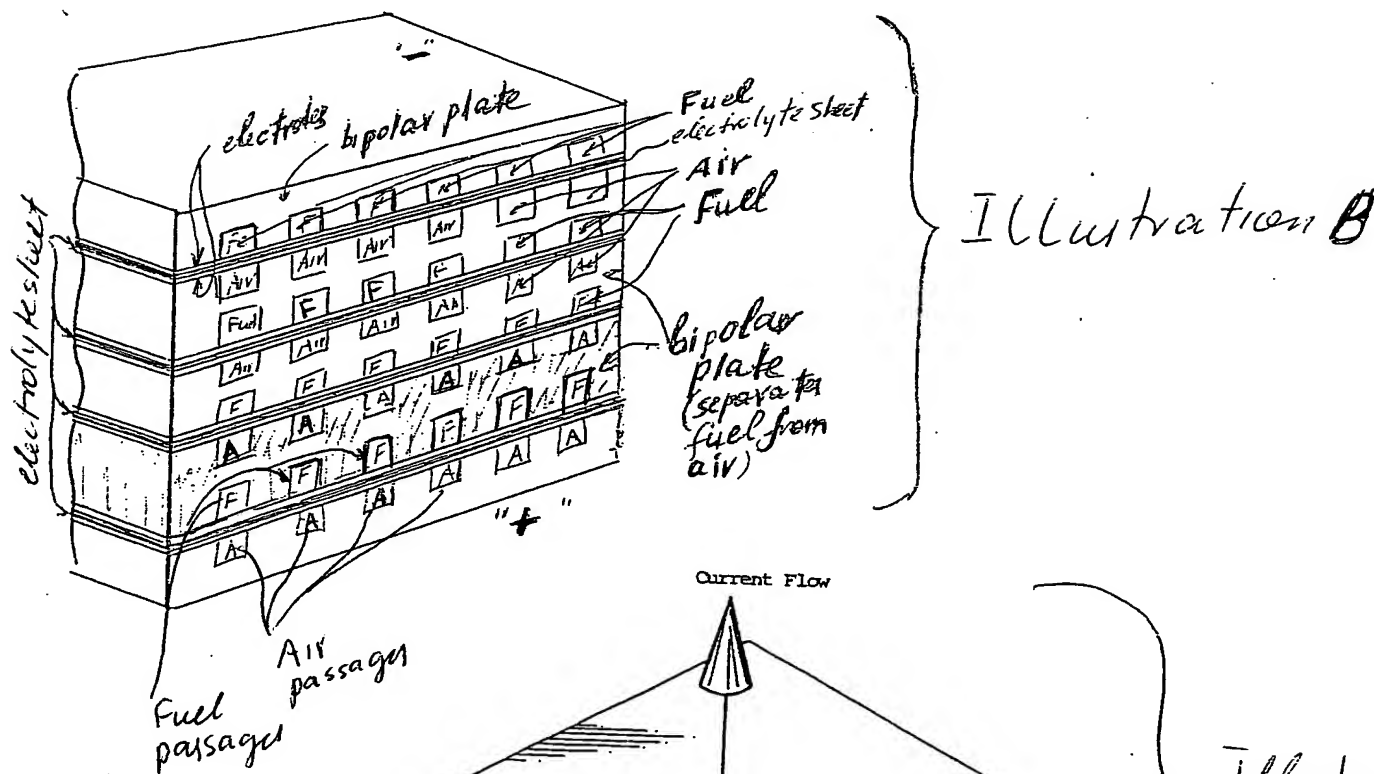 "-"
electrodes
bipolar plate
Fuel
electrolyte sheet
Air
Fuel
Illustration B
electrolyte sheet
F F
Air Air Air Air
Fuel F F
Air Air Air
F F F F
A A A A A A
F F F F F F
A A A A A A
bipolar
plate
(separates
fuel from
air)
"+"
Air
passages
Fuel
passages
Current Flow